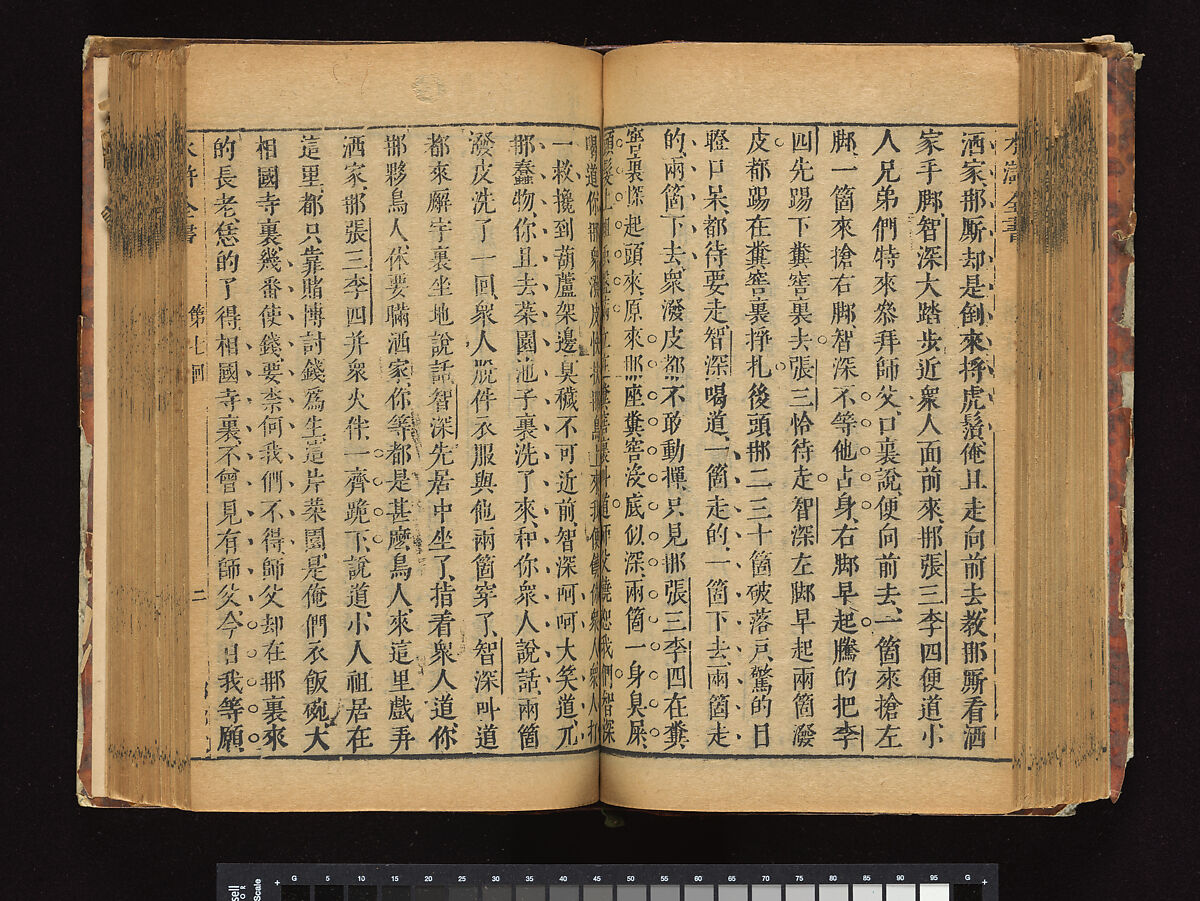 水滸全書
洒家那廝却是倒來捋虎鬚俺且走向前去教那廝看洒
家手脚智深大踏步近衆人面前來那張三李四便道小
人兄弟們特來叅拜師父口裏說便向前去一箇來搶左
脚一箇來搶右脚智深不等他占身右脚早起騰的把李
四先踢下糞窖裏去張三恰待走智深左脚早起兩箇潑
皮都踢在糞窖裏掙扎後頭那二三十箇破落戶驚的目
瞪口呆都待要走智深喝道一箇走的一箇下去兩箇走
的兩箇下去衆潑皮都不敢動撣只見那張三李四在糞
窖裏探起頭來原來那座糞窖沒底似深兩箇一身臭屎
頭髮上
喝道你那衆潑皮快扶那鳥上來我便饒你衆人衆人打
一救攙到葫蘆架邊臭穢不可近前智深呵呵大笑道兀
那蠢物你且去菜園池子裏洗了來和你衆人說話兩箇
潑皮洗了一回衆人脫件衣服與他兩箇穿了智深叫道
都來廨宇裏坐地說話智深先居中坐了指着衆人道你
那夥鳥人休要瞞洒家你等都是甚麼鳥人來這里戲弄
洒家那張三李四并衆火伴一齊跪下說道小人祖居在
這里都只靠賭博討錢爲生這片菜園是俺們衣飯碗大
相國寺裏幾番使錢要柰何我們不得師父却在那裏來
的長老恁的了得相國寺裏不曾見有師父今日我等願
水滸全書
第七回
二